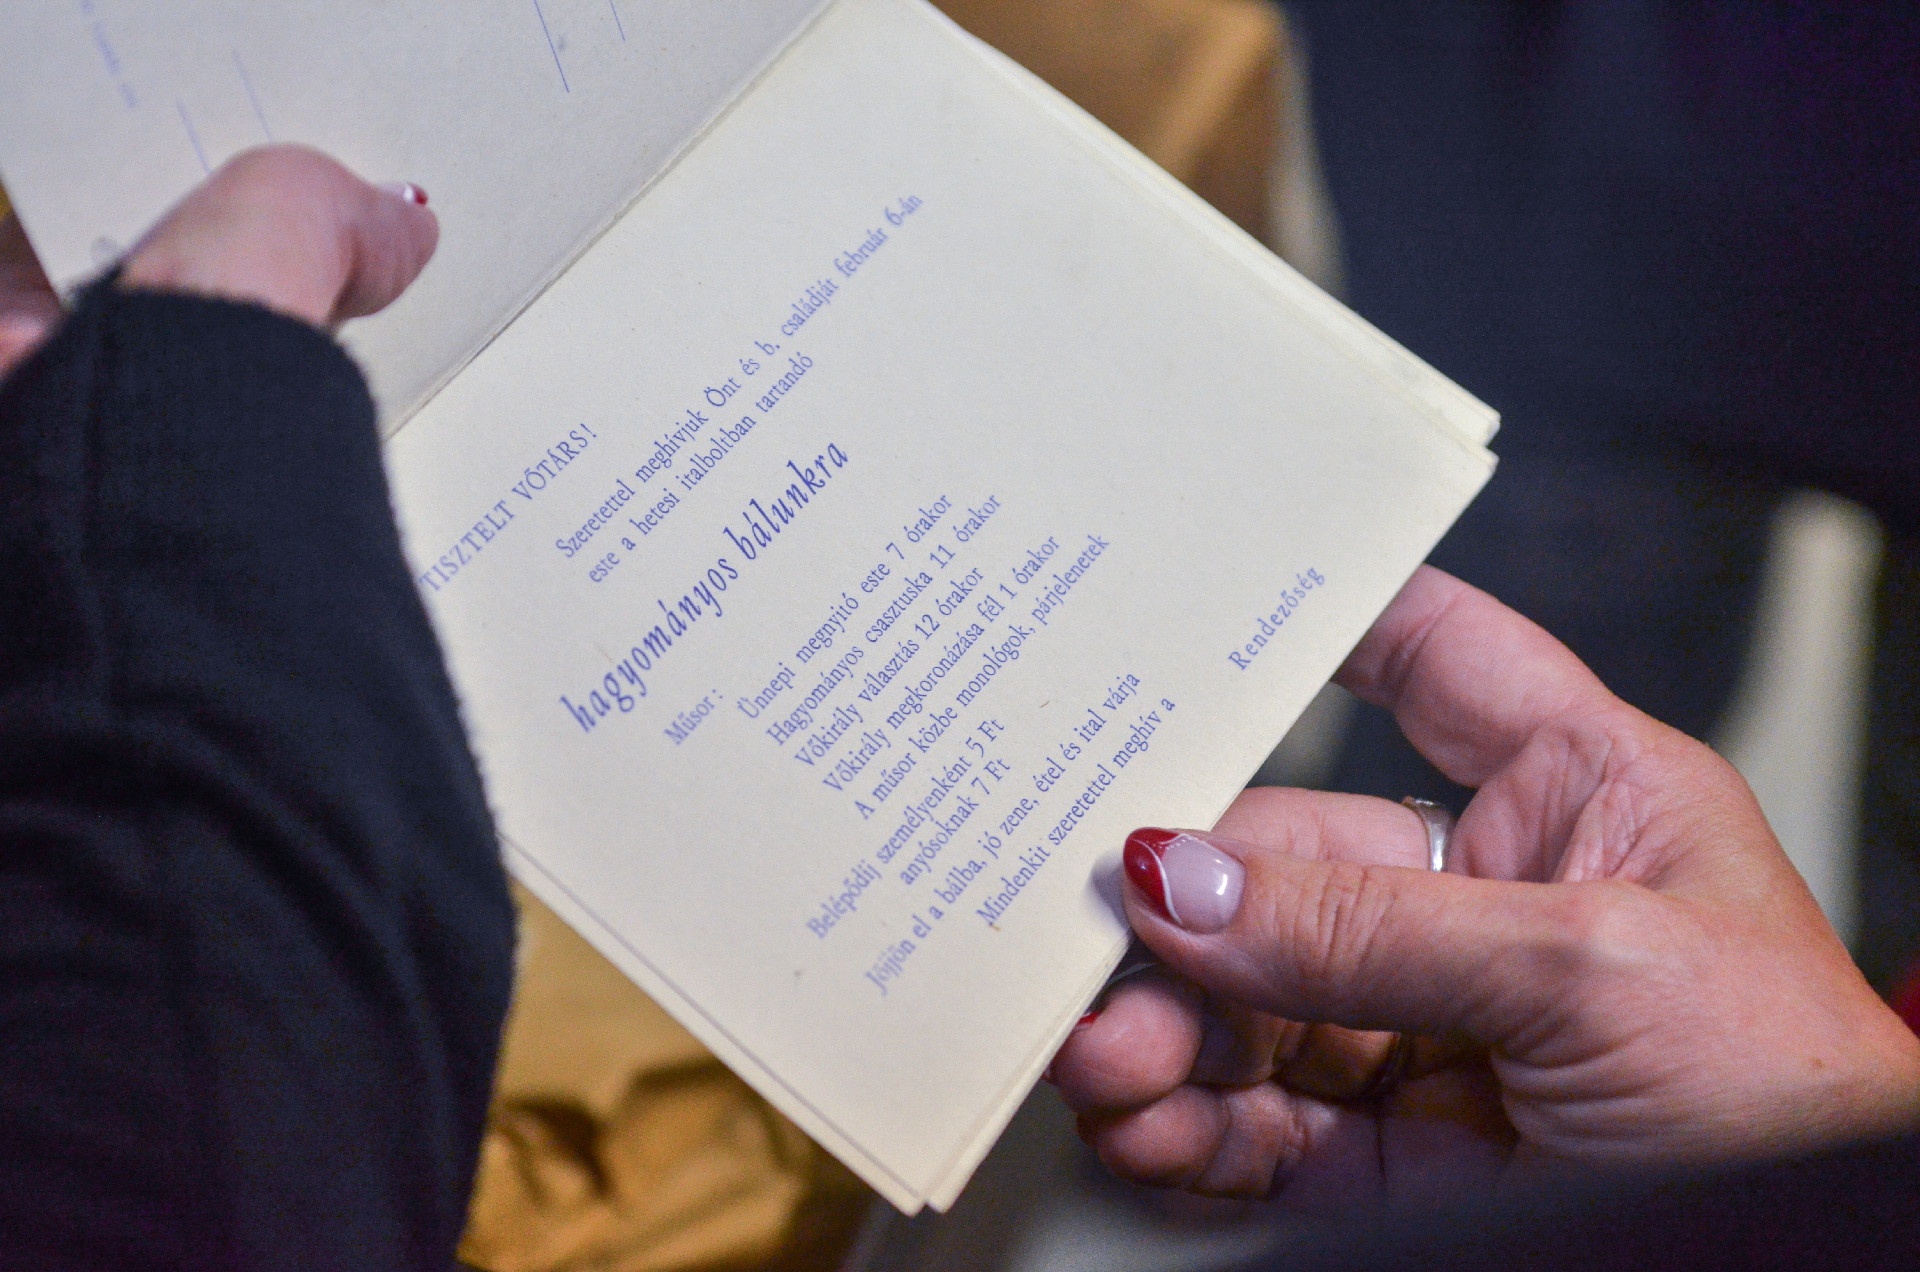 TISZTELT VŐTÁRS!
Szeretettel meghívjuk Önt és b. családját február 6-án
este a hetesi italboltban tartandó
hagyományos bálunkra
Műsor:
Ünnepi megnyitó este 7 órakor
Hagyományos csasztuska 11 órakor
Vőkirály választás 12 órakor
Vőkirály megkoronázása fél 1 órakor
A műsor közbe monológok, párjelenetek
Belépődij személyenként 5 Ft
anyósoknak 7 Ft
Jöjjön el a bálba, jó zene, étel és ital várja
Mindenkit szeretettel meghív a
Rendezőség